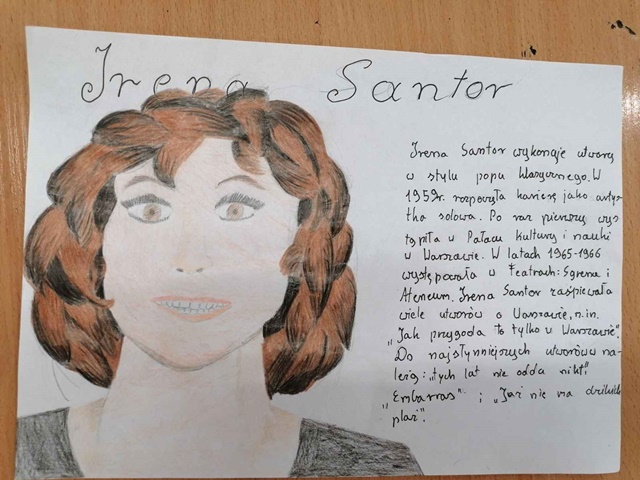 Irena Santor
Irena Santor wykonuje utwory
w stylu popu klasycznego. W
1959r. rozpoczęła karierę jako artys-
tka solowa. Po raz pierwszy wys-
tąpiła w Pałacu Kultury i nauki
w Warszawie. W latach 1965-1966
występowała w Teatrach: Syrena i
Ateneum. Irena Santor zaśpiewała
wiele utworów o Warszawie, n.in.
"Jak przygoda to tylko w Warszawie".
Do najsłynniejszych utworów na-
leżą: "tych lat nie odda nikt",
"Embarras" i "Już nie ma dzikich
plaż".